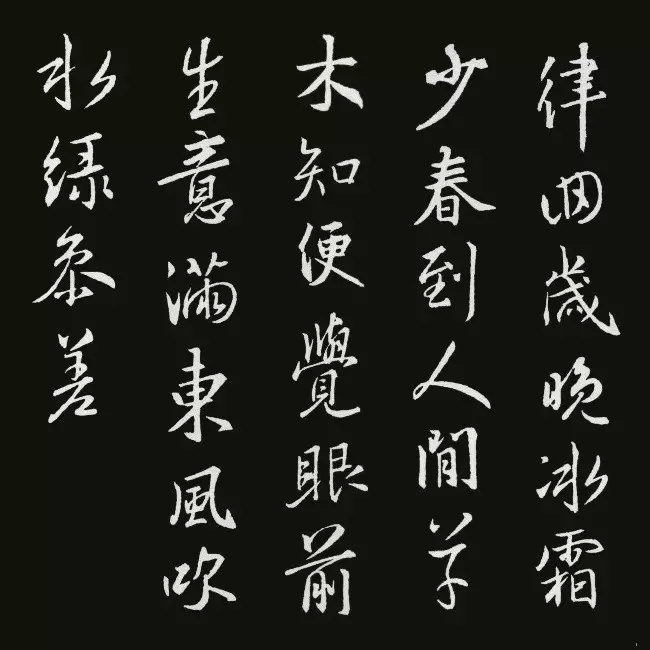 律回歲晚冰霜
少春到人間草
木知便覺眼前
生意滿東風吹
水绿参差